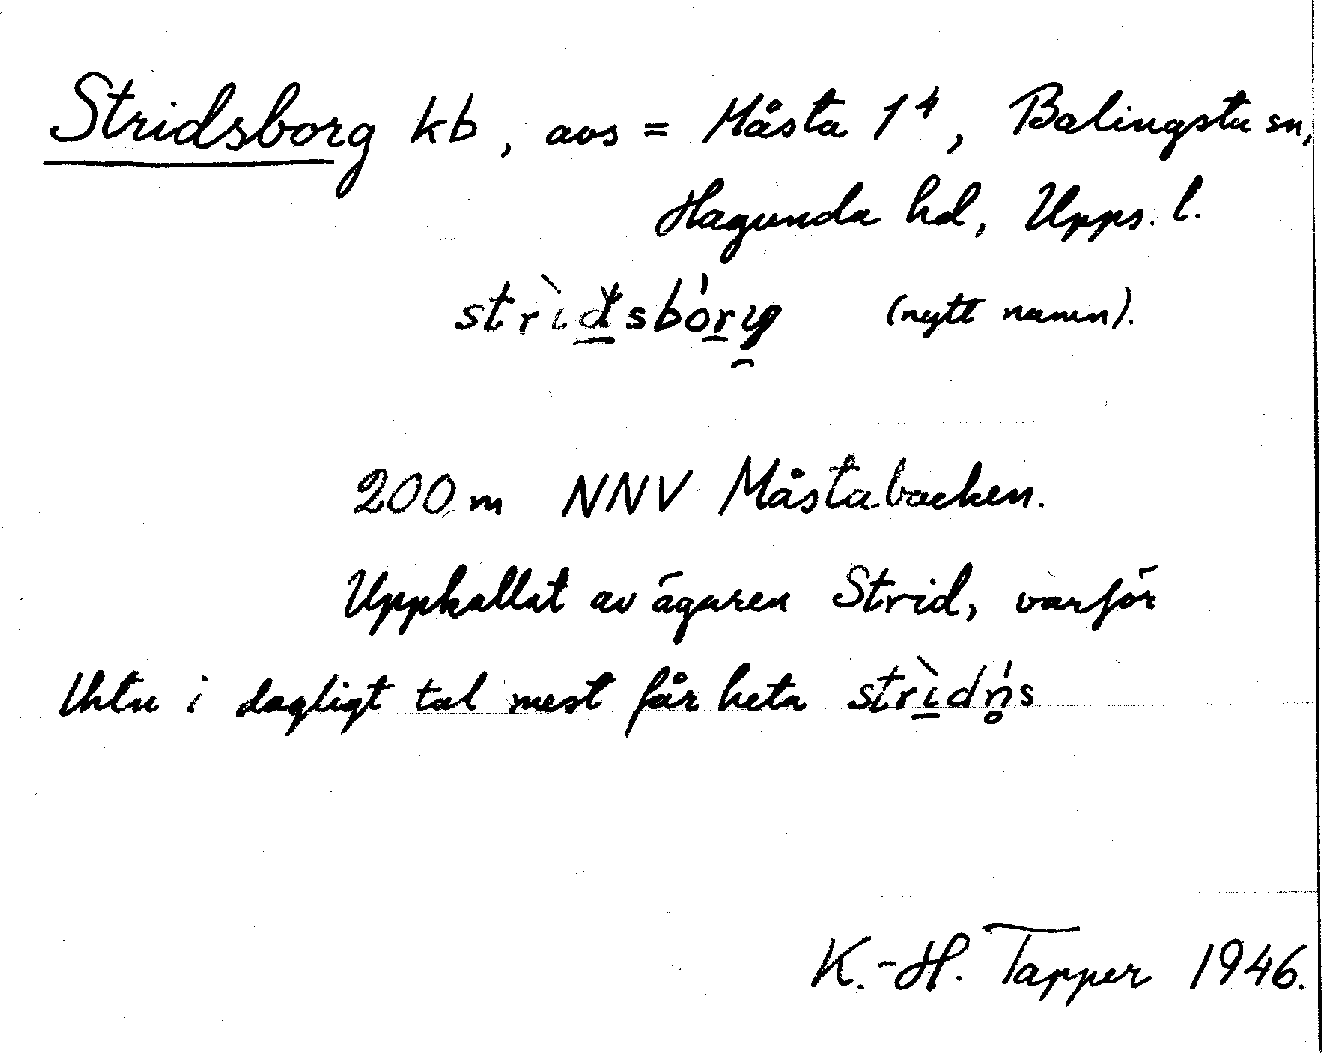 Stridsborg kb, avs = Måsta 1⁴, Balingsta sn,
Hagunda hd, Upps. l.
strìdsbórg (nytt namn).
200 m NNV Måstabacken.
Uppkallat av ägaren Strid, varför
Uhtn i dagligt tal mest får heta strìdń̥s
K.-H. Tapper 1946.